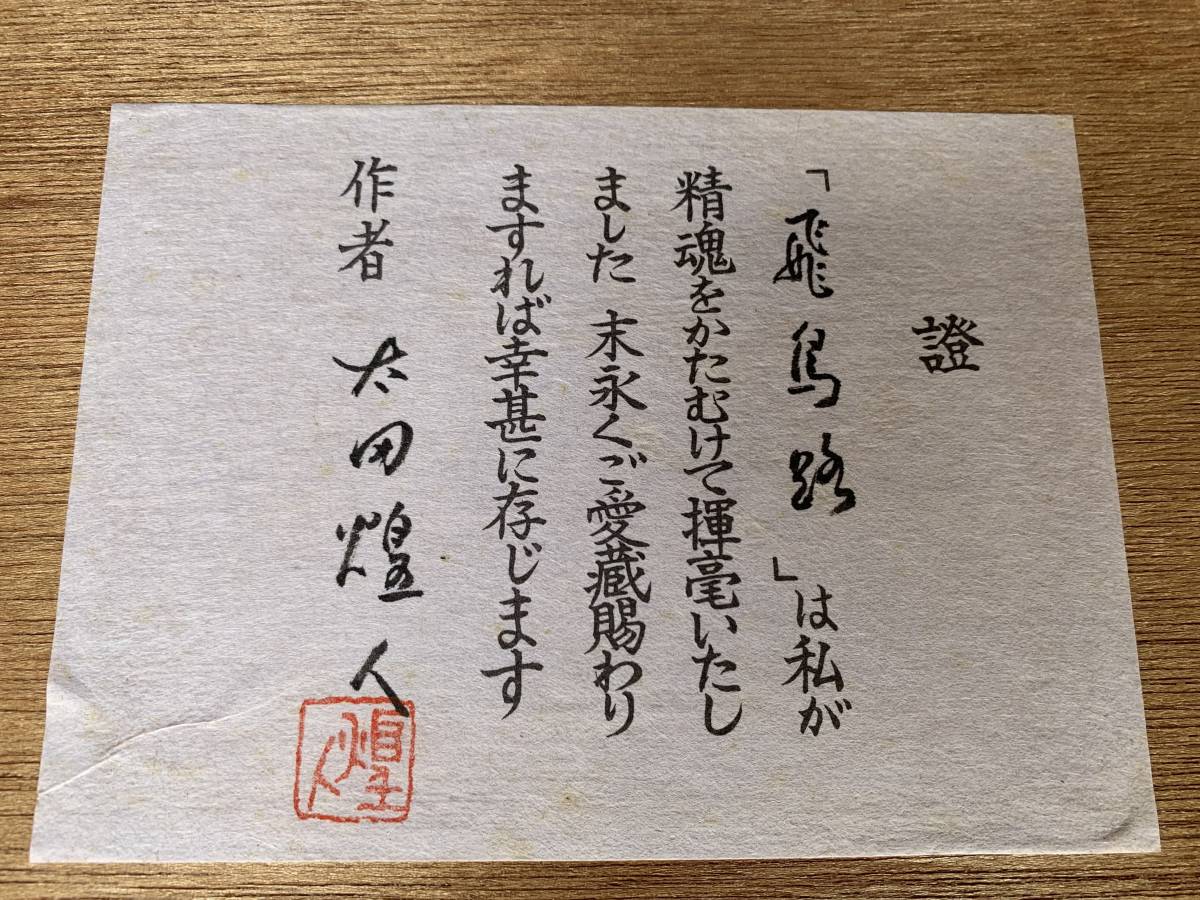 證
「飛鳥路」は私が
精魂をかたむけて揮毫いたし
ました 末永くご愛蔵賜わり
ますれば幸甚に存じます
作者 太田煌人
煌人